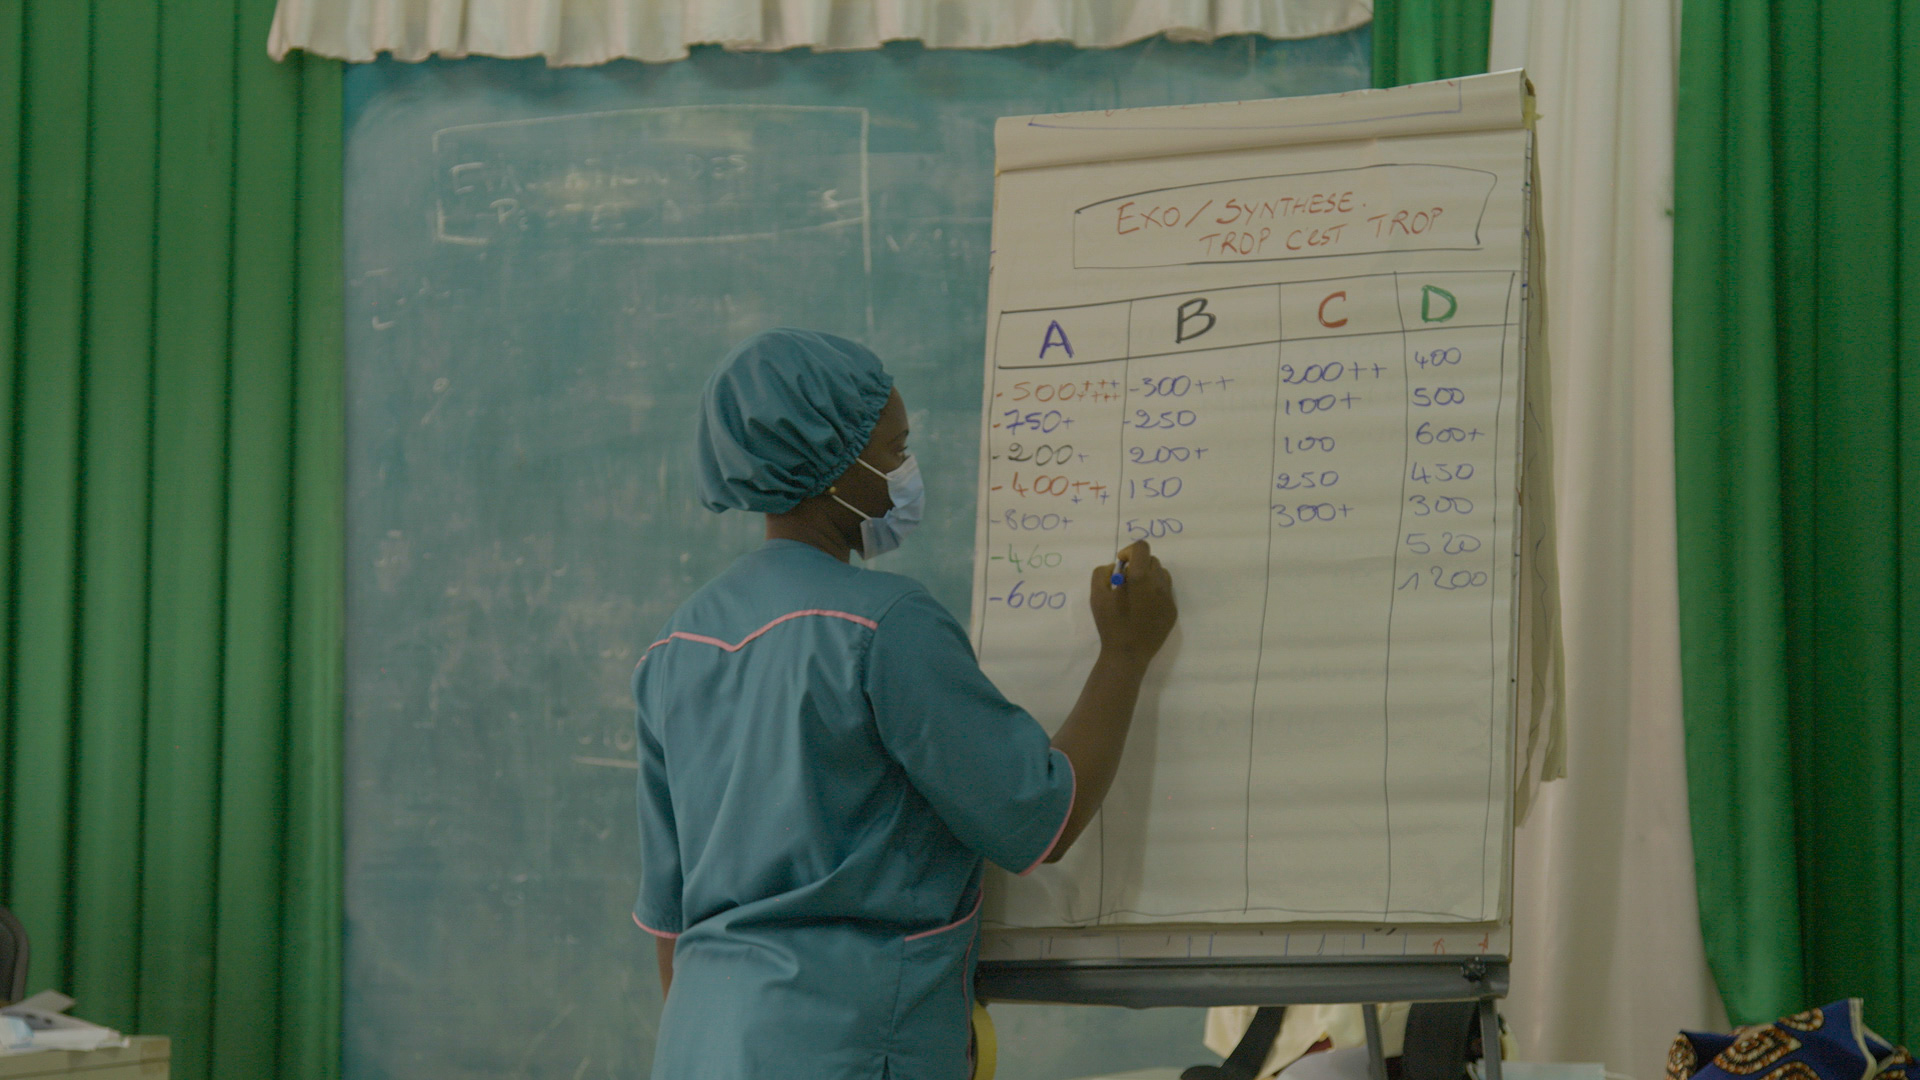 EXO/SYNTHESE.
TROP C'EST TROP
A B C D
-500+++++++ -300++ 200++ 400
-750+ -250 100+ 500
-200+ 200+ 100 600+
-400++++ 150 250 450
-800+ 500 300+ 300
-460 520
-600 1200